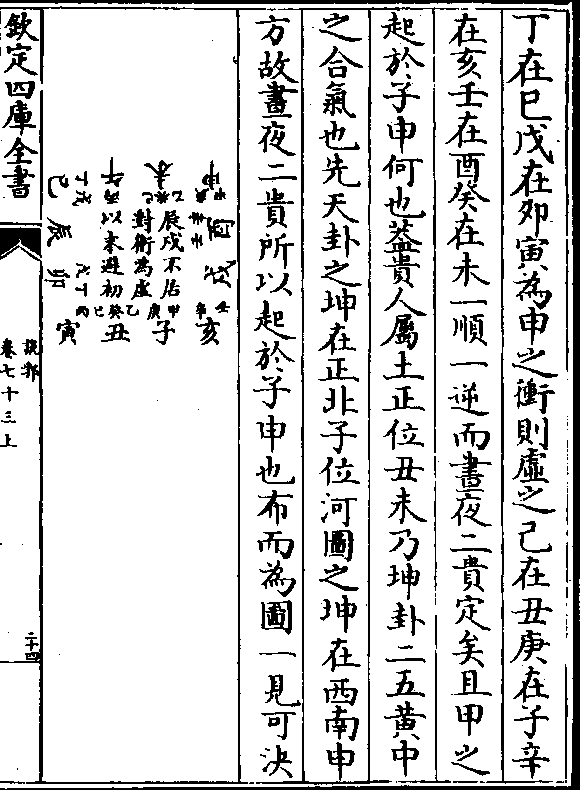 丁在巳戊在夘寅為申之衝則虛之己在丑庚在子辛
在亥壬在酉癸在未一順一逆而晝夜二貴定矣且甲之
起於子申何也葢貴人屬土正位丑未乃坤卦二五黄中
之合氣也先天卦之坤在正北子位河圖之坤在西南申
方故晝夜二貴所以起於子申也布而為圖一見可決
申
酉
戌
亥
未
辰戌不居
子
對衝為虛
丑
午
以未避初
寅
巳
辰
卯
欽定四庫全書
説郛
卷七十三上
二十四